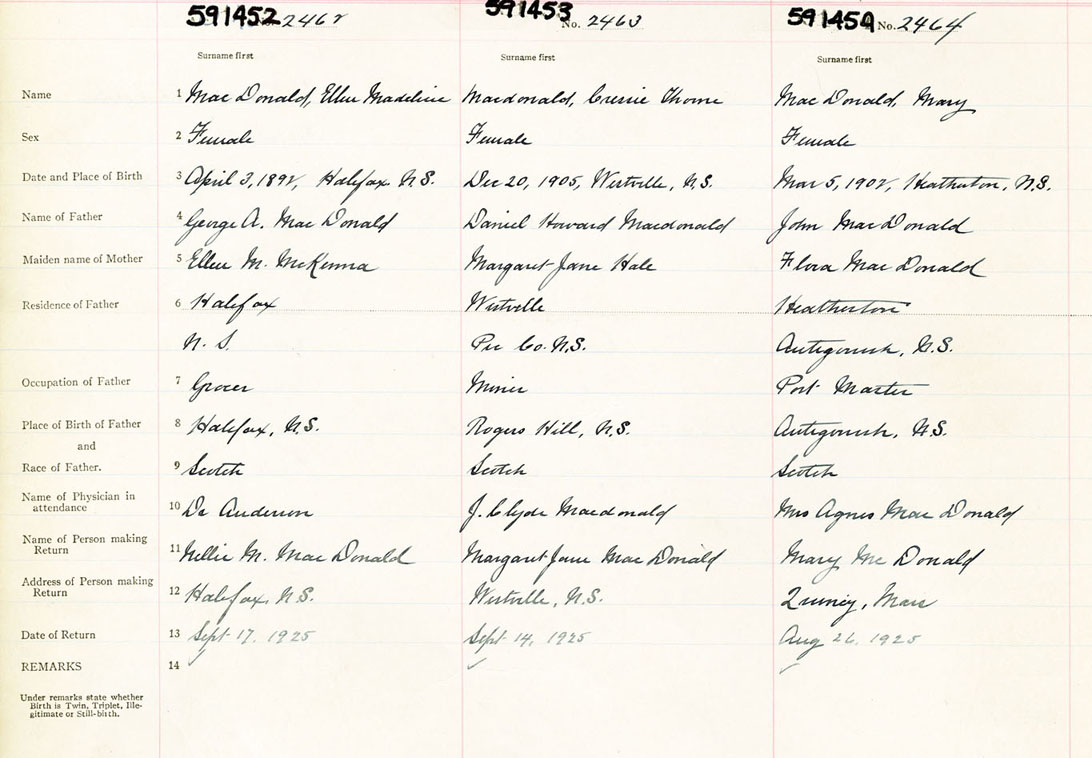 591452 2462 591453 No. 2463 591454 No. 2464
Surname first Surname first Surname first
Name 1 Mac Donald, Ellen Madeline Macdonald, Cressie Thorne Mac Donald, Mary
Sex 2 Female Female Female
Date and Place of Birth 3 April 3, 1892, Halifax N.S. Dec 20, 1905, Westville, N.S. Mar 5, 1902, Heatherton, N.S.
Name of Father 4 George A. Mac Donald Daniel Howard Macdonald John MacDonald
Maiden name of Mother 5 Ellen M. McKenna Margaret Jane Hale Flora Mac Donald
Residence of Father 6 Halifax Westville Heatherton
N. S. Co. N.S. Antigonish, N.S.
Occupation of Father 7 Grocer Miner Post Master
Place of Birth of Father 8 Halifax, N.S. Rogers Hill, N.S. Antigonish, N.S.
and
Race of Father. 9 Scotch Scotch Scotch
Name of Physician in attendance 10 Dr Anderson J. Clyde Macdonald Mrs Agnes Mac Donald
Name of Person making Return 11 Nellie M. Mac Donald Margaret Jane Mac Donald Mary Mc Donald
Address of Person making Return 12 Halifax, N.S. Westville, N.S. Quincy, Mass
Date of Return 13 Sept 17, 1925 Sept 14, 1925 Aug 26, 1925
REMARKS 14
Under remarks state whether
Birth is Twin, Triplet, Ille-
gitimate or Still-birth.